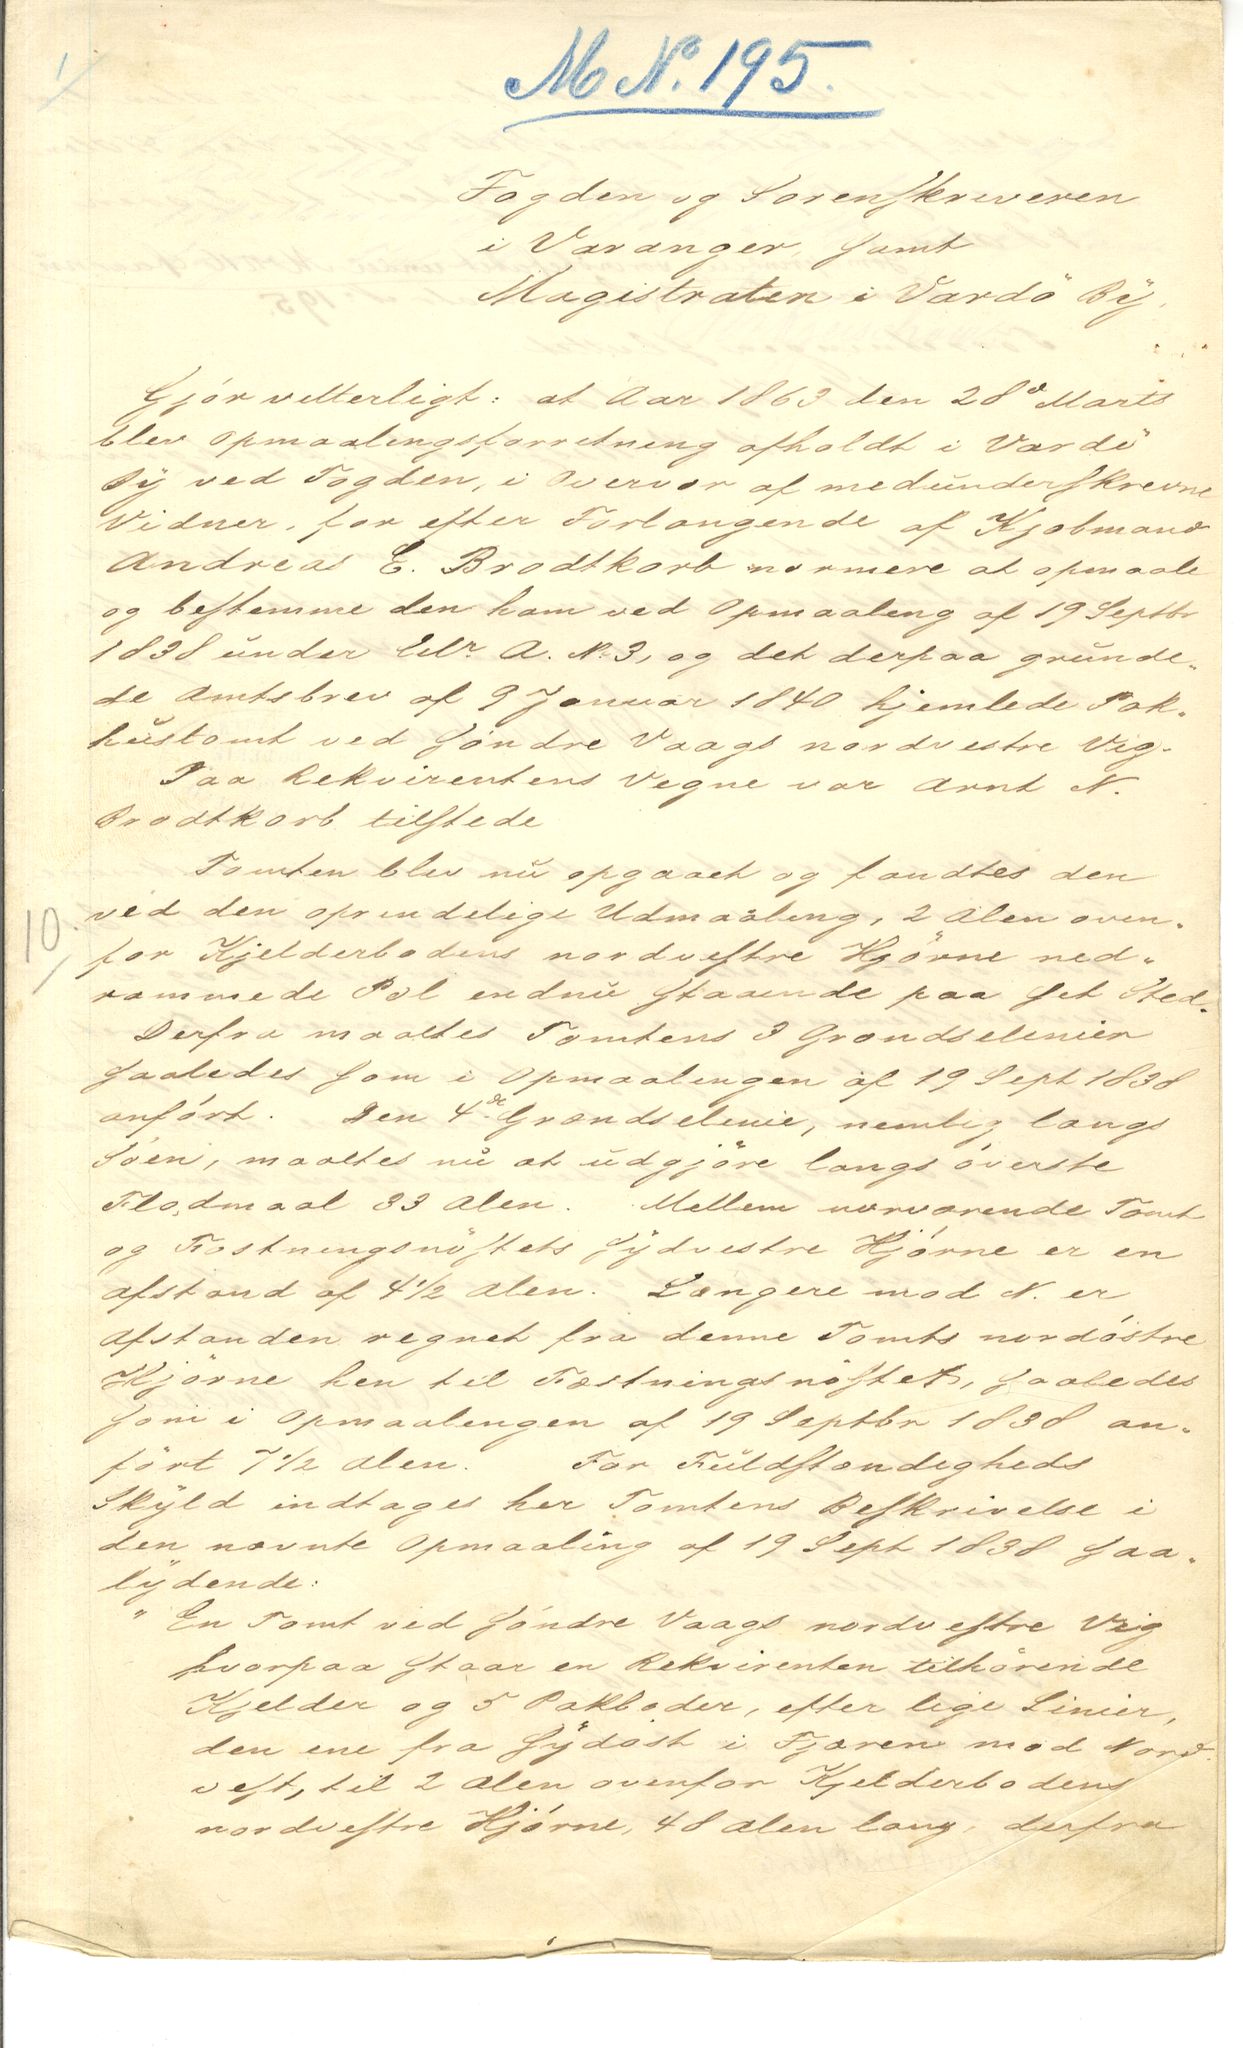 1
M No. 195.
Fogden og Sorenskriveren
i Varanger, samt
Magistraten i Vardö Bÿ,
Gjör vetterligt: at Aar 1863 den 28de Marts
blev Opmaalingsforretning afholdt i Vardö
Bÿ ved Fogden, i Overvær af medunderskrevne
Vidner, for efter Forlangende af Kjøbmand
Andreas E. Brodtkorb nærmere at opmaale
og bestemme den ham ved Opmaaling af 19 Septbr
1838 under Litr. A. No 3, og det derpaa grunde„
de Amtsbrev af 9 Januar 1840 hjemlede Pak„
hustomt ved söndre Vaags nordvestre Vig.
Paa Rekvirentens Vegne var Arnt N.
Brodtkorb tilstede
Tomten blev nu opgaaet og fandtes den
ved den oprindelige Udmaaling, 2 Alen oven„
10.
for Kjelderbodens nordvestre Hjörne ned„
rammede Pæl endnu staaende paa sit Sted.
Derfra maaltes Tomtens 3 Grændselinier
saaledes som i Opmaalingen af 19 Sept 1838
anfört. Den 4de Grændselinie, nemlig langs
Söen, maaltes nu at udgjöre langs överste
Flodmaal 33 Alen. Mellem nærværende Tomt
og Fæstningsnöstets sÿdvestre Hjörne er en
afstand af 4 1/2 Alen. Længere mod N. er
Afstanden regnet fra denne Tomts nordöstre
Hjörne hen til Fæstningsnöstet, saaledes
som i Opmaalingen af 19 Septbr 1838 an„
fört 7 1/2 Alen. For Fuldstændigheds
Skÿld indtages her Tomtens Beskrivelse i
den nævnte Opmaaling af 19 Sept 1838 saa„
lÿdende:
„ En Tomt ved söndre Vaags nordvestre Vig
hvorpaa staar en Rekvirenten tilhörende
Kjelder og 5 Pakboder, efter lige Linier,
den ene fra Sÿdöst i Fjæren mod Nord
vest, til 2 Alen ovenfor Kjelderbodens
nordvestre Hjörne, 48 Alen lang, derfra